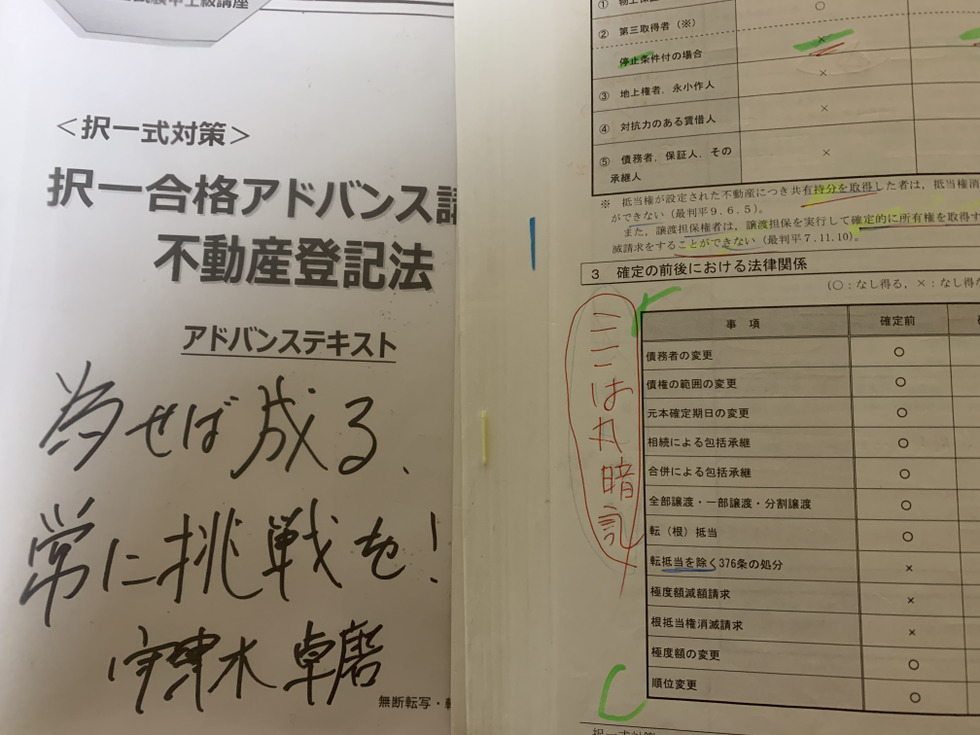 試験中上級講座
＜択一式対策＞
択一合格アドバンス講
不動産登記法
アドバンステキスト
為せば成る、
常に挑戦を!
卓磨
無断転写・
①
② 第三取得者（※）
停止条件付の場合 ×
③ 地上権者，永小作人 ×
④ 対抗力のある賃借人 ×
⑤ 債務者，保証人，その承継人 ×
※ 抵当権が設定された不動産につき共有持分を取得した者は，抵当権消
ができない（最判平9.6.5）。
また，譲渡担保権者は，譲渡担保を実行して確定的に所有権を取得す
滅請求をすることができない（最判平7.11.10）。
3 確定の前後における法律関係
（○：なし得る，×：なし得な
ここは丸暗記
事 項 確定前
債務者の変更 ○
債権の範囲の変更 ○
元本確定期日の変更 ○
相続による包括承継 ○
合併による包括承継 ○
全部譲渡・一部譲渡・分割譲渡 ○
転（根）抵当 ○
転抵当を除く376条の処分 ×
極度額減額請求 ×
根抵当権消滅請求 ×
極度額の変更 ○
順位変更 ○
択一式対策